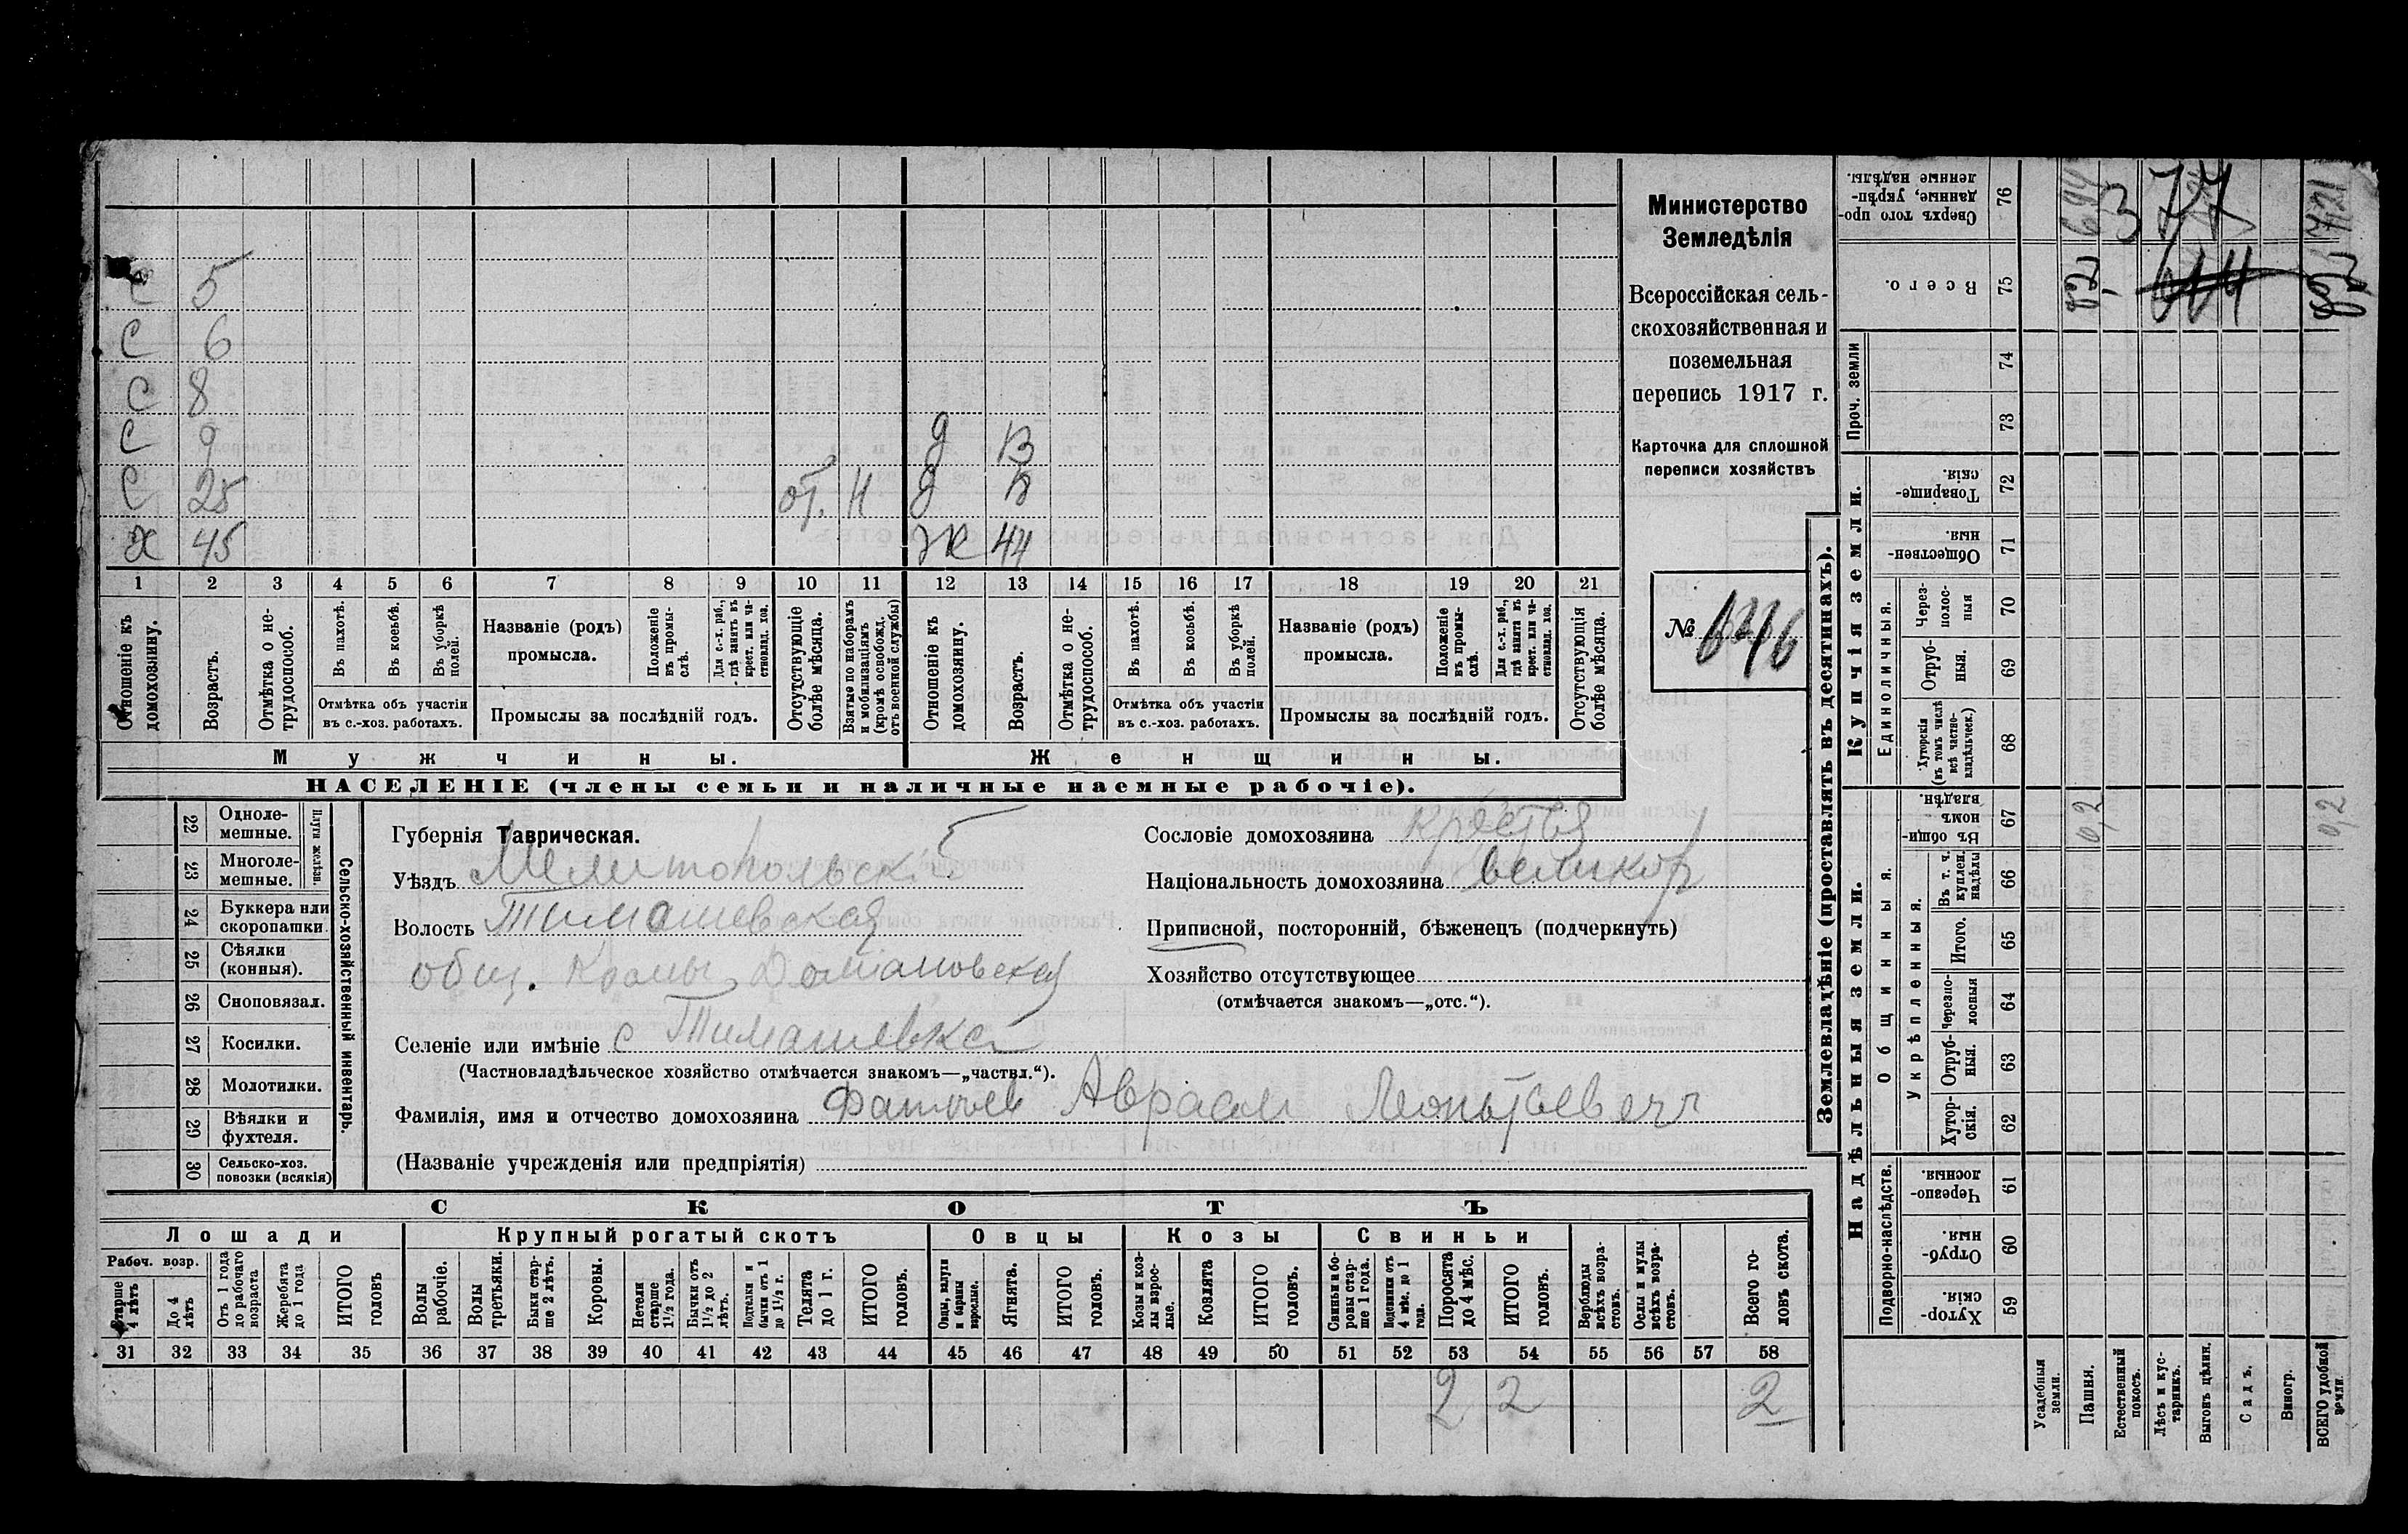 С 5
С 6
С 8
С 9 д 13
С 25 от. н д
х 45 ж 44
1 2 3 4 5 6 7 8 9 10 11 12 13 14 15 16 17 18 19 20 21
Отношеніе къ домохозяину.
Возрастъ.
Отмѣтка о нетрудоспособ.
Въ пахотѣ.
Въ косьбѣ.
Въ уборкѣ полей.
Отмѣтка объ участіи въ с.-хоз. работахъ.
Названіе (родъ) промысла.
Положеніе въ промыслѣ.
Для с.-х. раб., гдѣ занятъ въ крест. или частновлад. хоз.
Промыслы за послѣдній годъ.
Отсутствующіе болѣе мѣсяца.
Взятые по наборамъ и мобилизаціямъ (кромѣ освобожд. отъ военной службы)
Отношеніе къ домохозяину.
Возрастъ.
Отмѣтка о нетрудоспособ.
Въ пахотѣ.
Въ косьбѣ.
Въ уборкѣ полей.
Отмѣтка объ участіи въ с.-хоз. работахъ.
Названіе (родъ) промысла.
Положеніе въ промыслѣ.
Для с.-х. раб., гдѣ занята въ крест. или частновлад. хоз.
Промыслы за послѣдній годъ.
Отсутствующія болѣе мѣсяца.
Мужчины.
Женщины.
НАСЕЛЕНІЕ (члены семьи и наличные наемные рабочіе).
Министерство
Земледѣлія
Всероссійская сель-
скохозяйственная и
поземельная
перепись 1917 г.
Карточка для сплошной
переписи хозяйствъ
№
22 Одноле-
мешные.
23 Многоле-
мешные.
Плуги желѣзн.
24 Буккера или
скоропашки
25 Сѣялки
(конныя).
26 Сноповязал.
27 Косилки.
28 Молотилки.
29 Вѣялки и
фухтеля.
30 Сельско-хоз.
повозки (всякія)
Сельско-хозяйственный инвентарь.
Губернія Таврическая.
Уѣздъ Мелитопольскій
Волость Тимашевская
общ.
Селеніе или имѣніе с Тимашевка
(Частновладѣльческое хозяйство отмѣчается знакомъ—„частвл.“).
Фамилія, имя и отчество домохозяина Аврам Леонтьевич
(Названіе учрежденія или предпріятія)
Сословіе домохозяина крестья
Національность домохозяина великор
Приписной, посторонній, бѣженецъ (подчеркнуть)
Хозяйство отсутствующее
(отмѣчается знакомъ—„отс.“).
СКОТЪ
Лошади Крупный рогатый скотъ Овцы Козы Свиньи
Рабоч. возр.
Старше 4 лѣтъ
До 4 лѣтъ
Отъ 1 года до рабочаго возраста
Жеребята до 1 года
ИТОГО головъ
Волы рабочіе.
Волы третьяки.
Быки старше 2 лѣтъ.
Коровы.
Нетели старше 1½ года.
Бычки отъ 1½ до 2 лѣтъ.
Подтелки и бычки отъ 1 до 1½ г.
Телята до 1 г.
ИТОГО головъ.
Овцы, валухи и бараны взрослые.
Ягнята.
ИТОГО головъ.
Козы и козлы взрослые.
Козлята
ИТОГО головъ.
Свиньи и боровы старше 1 года.
Подсвинки отъ 4 мѣс. до 1 года.
Поросята до 4 мѣс.
ИТОГО головъ.
Верблюды всѣхъ возрастовъ.
Ослы и мулы всѣхъ возрастовъ.
Всего головъ скота.
31 32 33 34 35 36 37 38 39 40 41 42 43 44 45 46 47 48 49 50 51 52 53 54 55 56 57 58
2 2 2
Землевладѣніе (проставлять въ десятинахъ).
Надѣльныя земли. Купчія земли.
Подворно-наслѣдств.
Общинныя.
Укрѣпленныя.
Единоличныя.
Проч. земли
Хуторскія. 59
Отрубныя. 60
Черезполосныя. 61
Хуторскія. 62
Отрубныя. 63
Черезполосныя 64
Итого. 65
Въ т. ч. куплен. надѣлы 66
Въ общинномъ владѣн. 67
Хуторскія (въ томъ числѣ всѣ частновладѣльческ.) 68
Отрубныя. 69
Черезполосныя 70
Общественныя. 71
Товарищескія. 72
73
74
Всего. 75
Сверхъ того проданные, укрѣпленные надѣлы. 76
Усадебныя земли.
Пашня.
Естественный покосъ.
Лѣсъ и кустарникъ.
Выгонъ цѣлин.
Садъ.
Виногр.
ВСЕГО удобной земли.
0,2
0,2
3 77